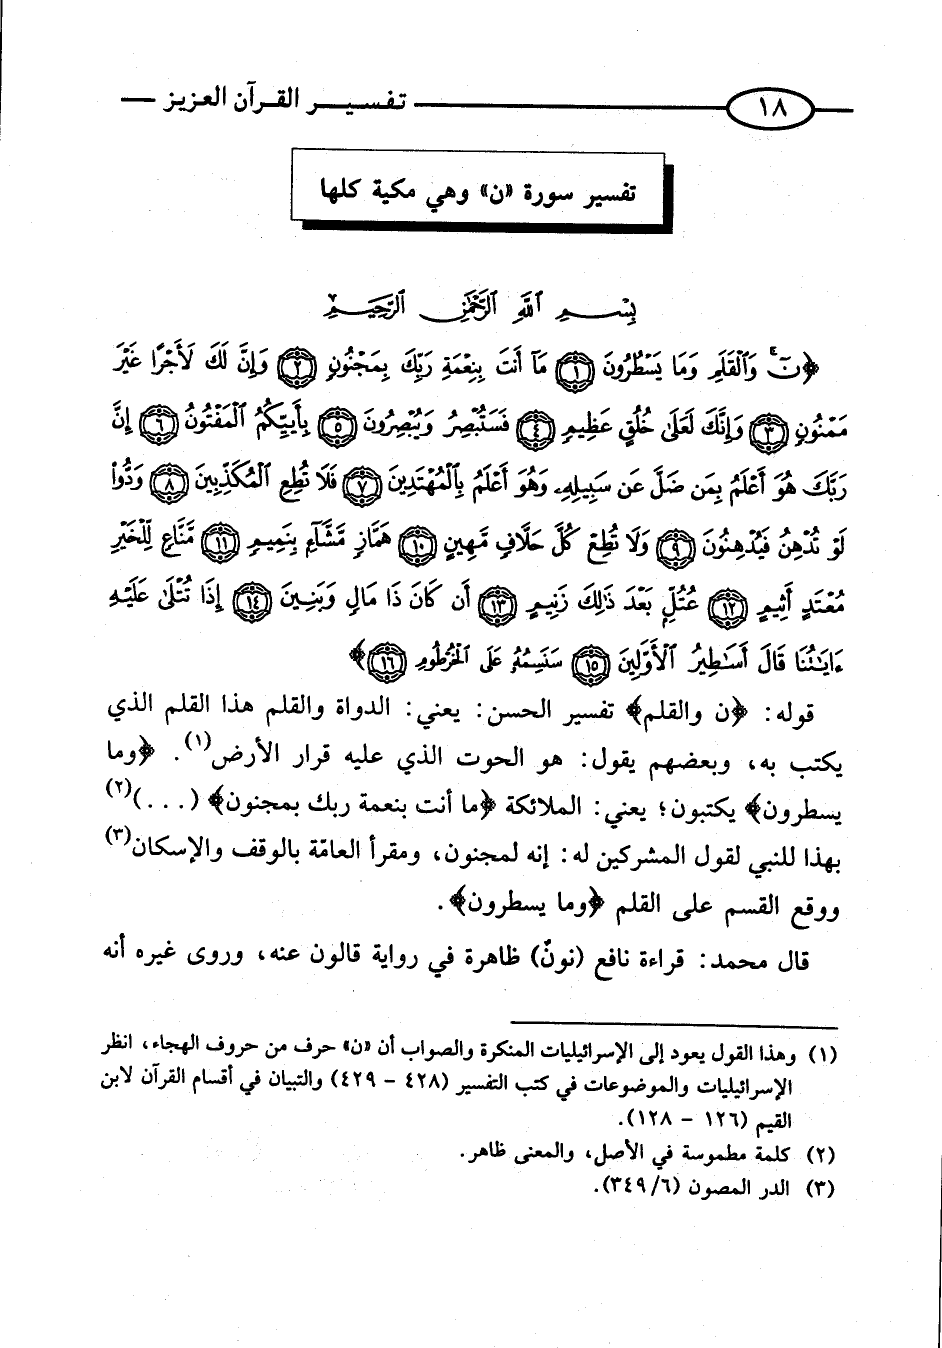 ١٨ تفسير القرآن العزيز
تفسير سورة «ن» وهي مكية كلها
بِسْمِ اللَّهِ الرَّحْمَٰنِ الرَّحِيمِ
﴿نٓ وَٱلْقَلَمِ وَمَا يَسْطُرُونَ ١ مَآ أَنتَ بِنِعْمَةِ رَبِّكَ بِمَجْنُونٍ ٢ وَإِنَّ لَكَ لَأَجْرًا غَيْرَ
مَمْنُونٍ ٣ وَإِنَّكَ لَعَلَىٰ خُلُقٍ عَظِيمٍ ٤ فَسَتُبْصِرُ وَيُبْصِرُونَ ٥ بِأَييِّكُمُ ٱلْمَفْتُونُ ٦ إِنَّ
رَبَّكَ هُوَ أَعْلَمُ بِمَن ضَلَّ عَن سَبِيلِهِۦ وَهُوَ أَعْلَمُ بِٱلْمُهْتَدِينَ ٧ فَلَا تُطِعِ ٱلْمُكَذِّبِينَ ٨ وَدُّوا۟
لَوْ تُدْهِنُ فَيُدْهِنُونَ ٩ وَلَا تُطِعْ كُلَّ حَلَّافٍ مَّهِينٍ ١٠ هَمَّازٍ مَّشَّآءٍ بِنَمِيمٍ ١١ مَّنَّاعٍ لِّلْخَيْرِ
مُعْتَدٍ أَثِيمٍ ١٢ عُتُلٍّ بَعْدَ ذَٰلِكَ زَنِيمٍ ١٣ أَن كَانَ ذَا مَالٍ وَبَنِينَ ١٤ إِذَا تُتْلَىٰ عَلَيْهِ
ءَايَـٰتُنَا قَالَ أَسَـٰطِيرُ ٱلْأَوَّلِينَ ١٥ سَنَسِمُهُۥ عَلَى ٱلْخُرْطُومِ ١٦﴾
قوله: ﴿ن والقلم﴾ تفسير الحسن: يعني: الدواة والقلم هذا القلم الذي
يكتب به، وبعضهم يقول: هو الحوت الذي عليه قرار الأرض(١). ﴿وما
يسطرون﴾ يكتبون؛ يعني: الملائكة ﴿ما أنت بنعمة ربك بمجنون﴾ (...)(٢)
بهذا للنبي لقول المشركين له: إنه لمجنون، ومقرأ العامّة بالوقف والإسكان(٣)
ووقع القسم على القلم ﴿وما يسطرون﴾.
قال محمد: قراءة نافع (نونْ) ظاهرة في رواية قالون عنه، وروى غيره أنه
(١) وهذا القول يعود إلى الإسرائيليات المنكرة والصواب أن «ن» حرف من حروف الهجاء، انظر
الإسرائيليات والموضوعات في كتب التفسير (٤٢٨ - ٤٢٩) والتبيان في أقسام القرآن لابن
القيم (١٢٦ - ١٢٨).
(٢) كلمة مطموسة في الأصل، والمعنى ظاهر.
(٣) الدر المصون (٣٤٩/٦).